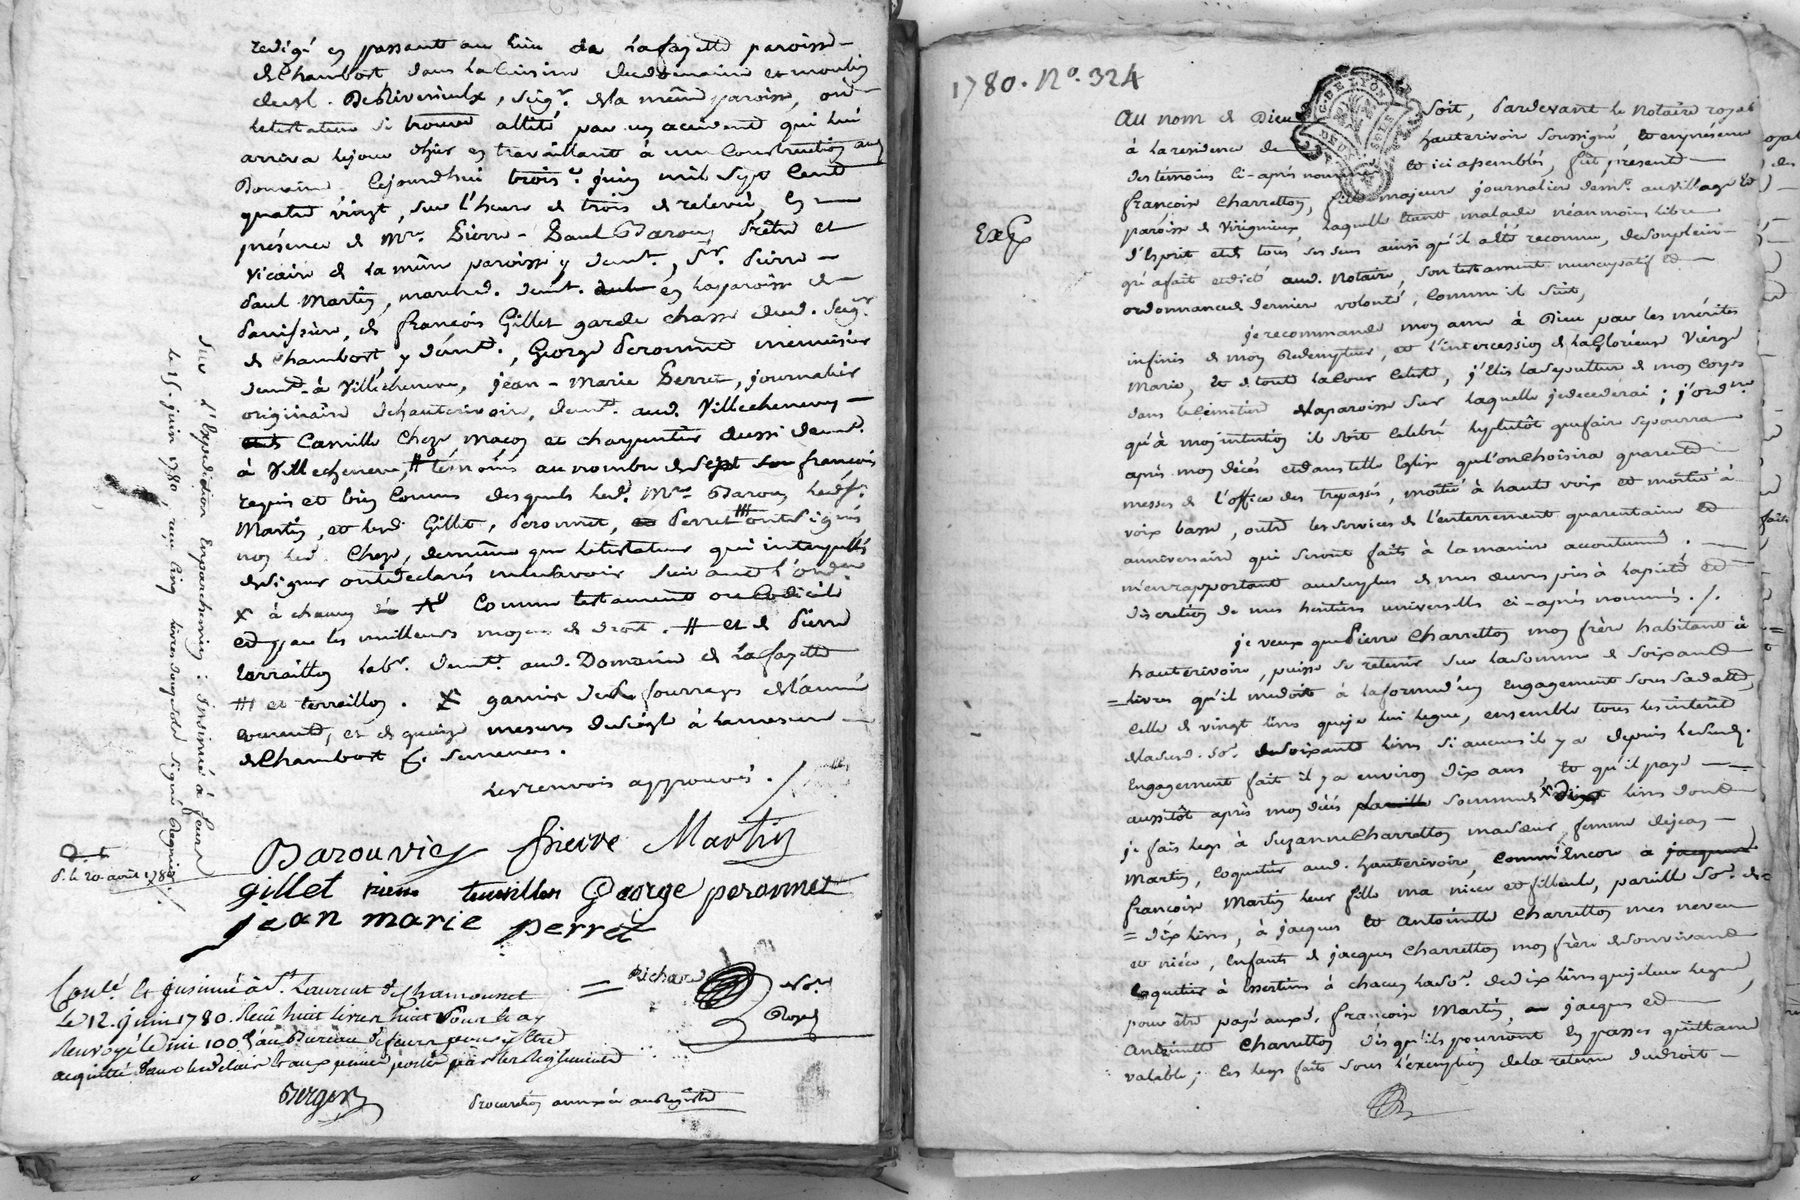 redigé et passant au lieu de Lafayette paroisse
de Chambost dans la cuisine dud. domaine et moulin
dud. seigr. de la même paroisse, où
le testateur se trouve allité par un accident qui lui
arriva le jour d'hier en travaillant à une construction aud.
Domaine. Cejourd'hui trois.e juin mil sept cent
quatre vingt, sur l'heure de trois de relevée, en
présence de Mre. Pierre-Paul Barou, Prêtre et
Vicaire de la même paroisse y demt., Sr. Pierre
Paul Martin, marchd. demt. en la paroisse de
Panissière, de françois Gillet garde chasse dud. seigr.
de Chambost, y demt., George Peronnet menuisier
demt. à Villechenève, jean-Marie Perret, journalier
originaire d'hauterivoire, demt. aud. Villechenève
Camille Cheze maçon et charpentier aussi demt.
à Villechenève, # témoins au nombre de sept
requis et bien connus desquels led. Mre. Barou, led. Sr.
Martin, et led. Gillet, Peronnet, Perret ### ont signés
non led. Cheze, de même que le testateur qui interpellés
de signer ont déclarés ne le savoir suivant l'ordce.
X à chacun comme testament ou codicile
et par les meilleurs moyens de droit. # et de Pierre
terraillon labr. demt. aud. Domaine de Lafayette
### et terraillon. X garnie de fourrage de l'année
courante, et de quinze mesures de seigle à la mesure
de Chambost Les renvois approuvés ./.
Barou vic Pierre Martin
gillet pierre terraillon George peronnet
jean marie perret
Richard
Not.
Royal
Conlé. et insinué à St. Laurent de Chamousset
le 12. juin 1780. Reçu huit livres huit sous
Renvoyé le mi 100e. au Bureau de feurs pour y être
acquitté dans les délais et aux peines portées par les Reglements
Berger
Procuration annexée au Registre
Sur l'Expedition En parchemin : insinué à feurs
le 15. juin 1780, reçu cinq livres signé
D. t.
d. le 20 avril 178
1780. No. 324
Au nom de Dieu soit, Pardevant le Notaire royal
à la residence de hauterivoire soussigné, et en presence
des témoins ci-après nommés et ici assemblés, fut présente
françoise Charretton, fille majeure journalière demt. au village et
paroisse de Virignieux laquelle étant malade néanmoins libre
d'Esprit et de tous ses sens ainsi qu'il a été reconnu, de son plein
gré a fait et dicté aud. Notaire, son testament nuncupatif et
ordonnance de derniere volonté, comme il suit,
je recommande mon ame à Dieu par les mérites
infinis de mon Redempteur, et l'intercession de la Glorieuse Vierge
Marie, et de toute la Cour Celeste, j'Elis la sepulture de mon corps
dans le Cimetiere de la paroisse sur laquelle je decederai ; j'ordne.
qu'à mon intention il soit celebré le plutôt que faire se pourra
après mon décès et dans telle Eglise que l'on choisira quarente
messes de l'office des trepassés, moitié à haute voix et moitié à
voix basse, outre les services de l'enterrement quarentaine et
anniversaire qui seront faits à la maniere accoutumée.
m'en rapportant au surplus de mes œuvres pies à la piété et
discrétion de mes heritiers universelles ci-après nommés ./.
je veux que Pierre Charretton mon frère habitant à
hauterivoire, puisse se retenir sur la somme de soixante
livres qu'il me doit à la forme d'un Engagement sous sa datte,
celle de vingt livres que je lui legue, ensemble tous les intérêts
de lad. so. de soixante livres si aucuns il y a depuis led.
Engagement fait il y a environ dix ans, et qu'il paye
aussitôt après mon décès somme X livres dont
je fais legs à Suzanne Charretton ma sœur, femme de jean
Martin, coquetier aud. hauterivoire, comme Encore à
françoise Martin leur fille ma niéce et filleule, pareille so. de
dix livres, à jacques et Antoinette Charretton mes neveu
et niéce, Enfants de jacques Charretton mon frère de son vivant
coquetier à Essertines à chacun la so. de dix livres que je leur legue,
pour être payé auxd. françoise Martin, jacques et
Antoinette Charretton dès qu'ils pourront En passer quittance
valable ; ces legs faits sous l'exemption de la retenue du droit